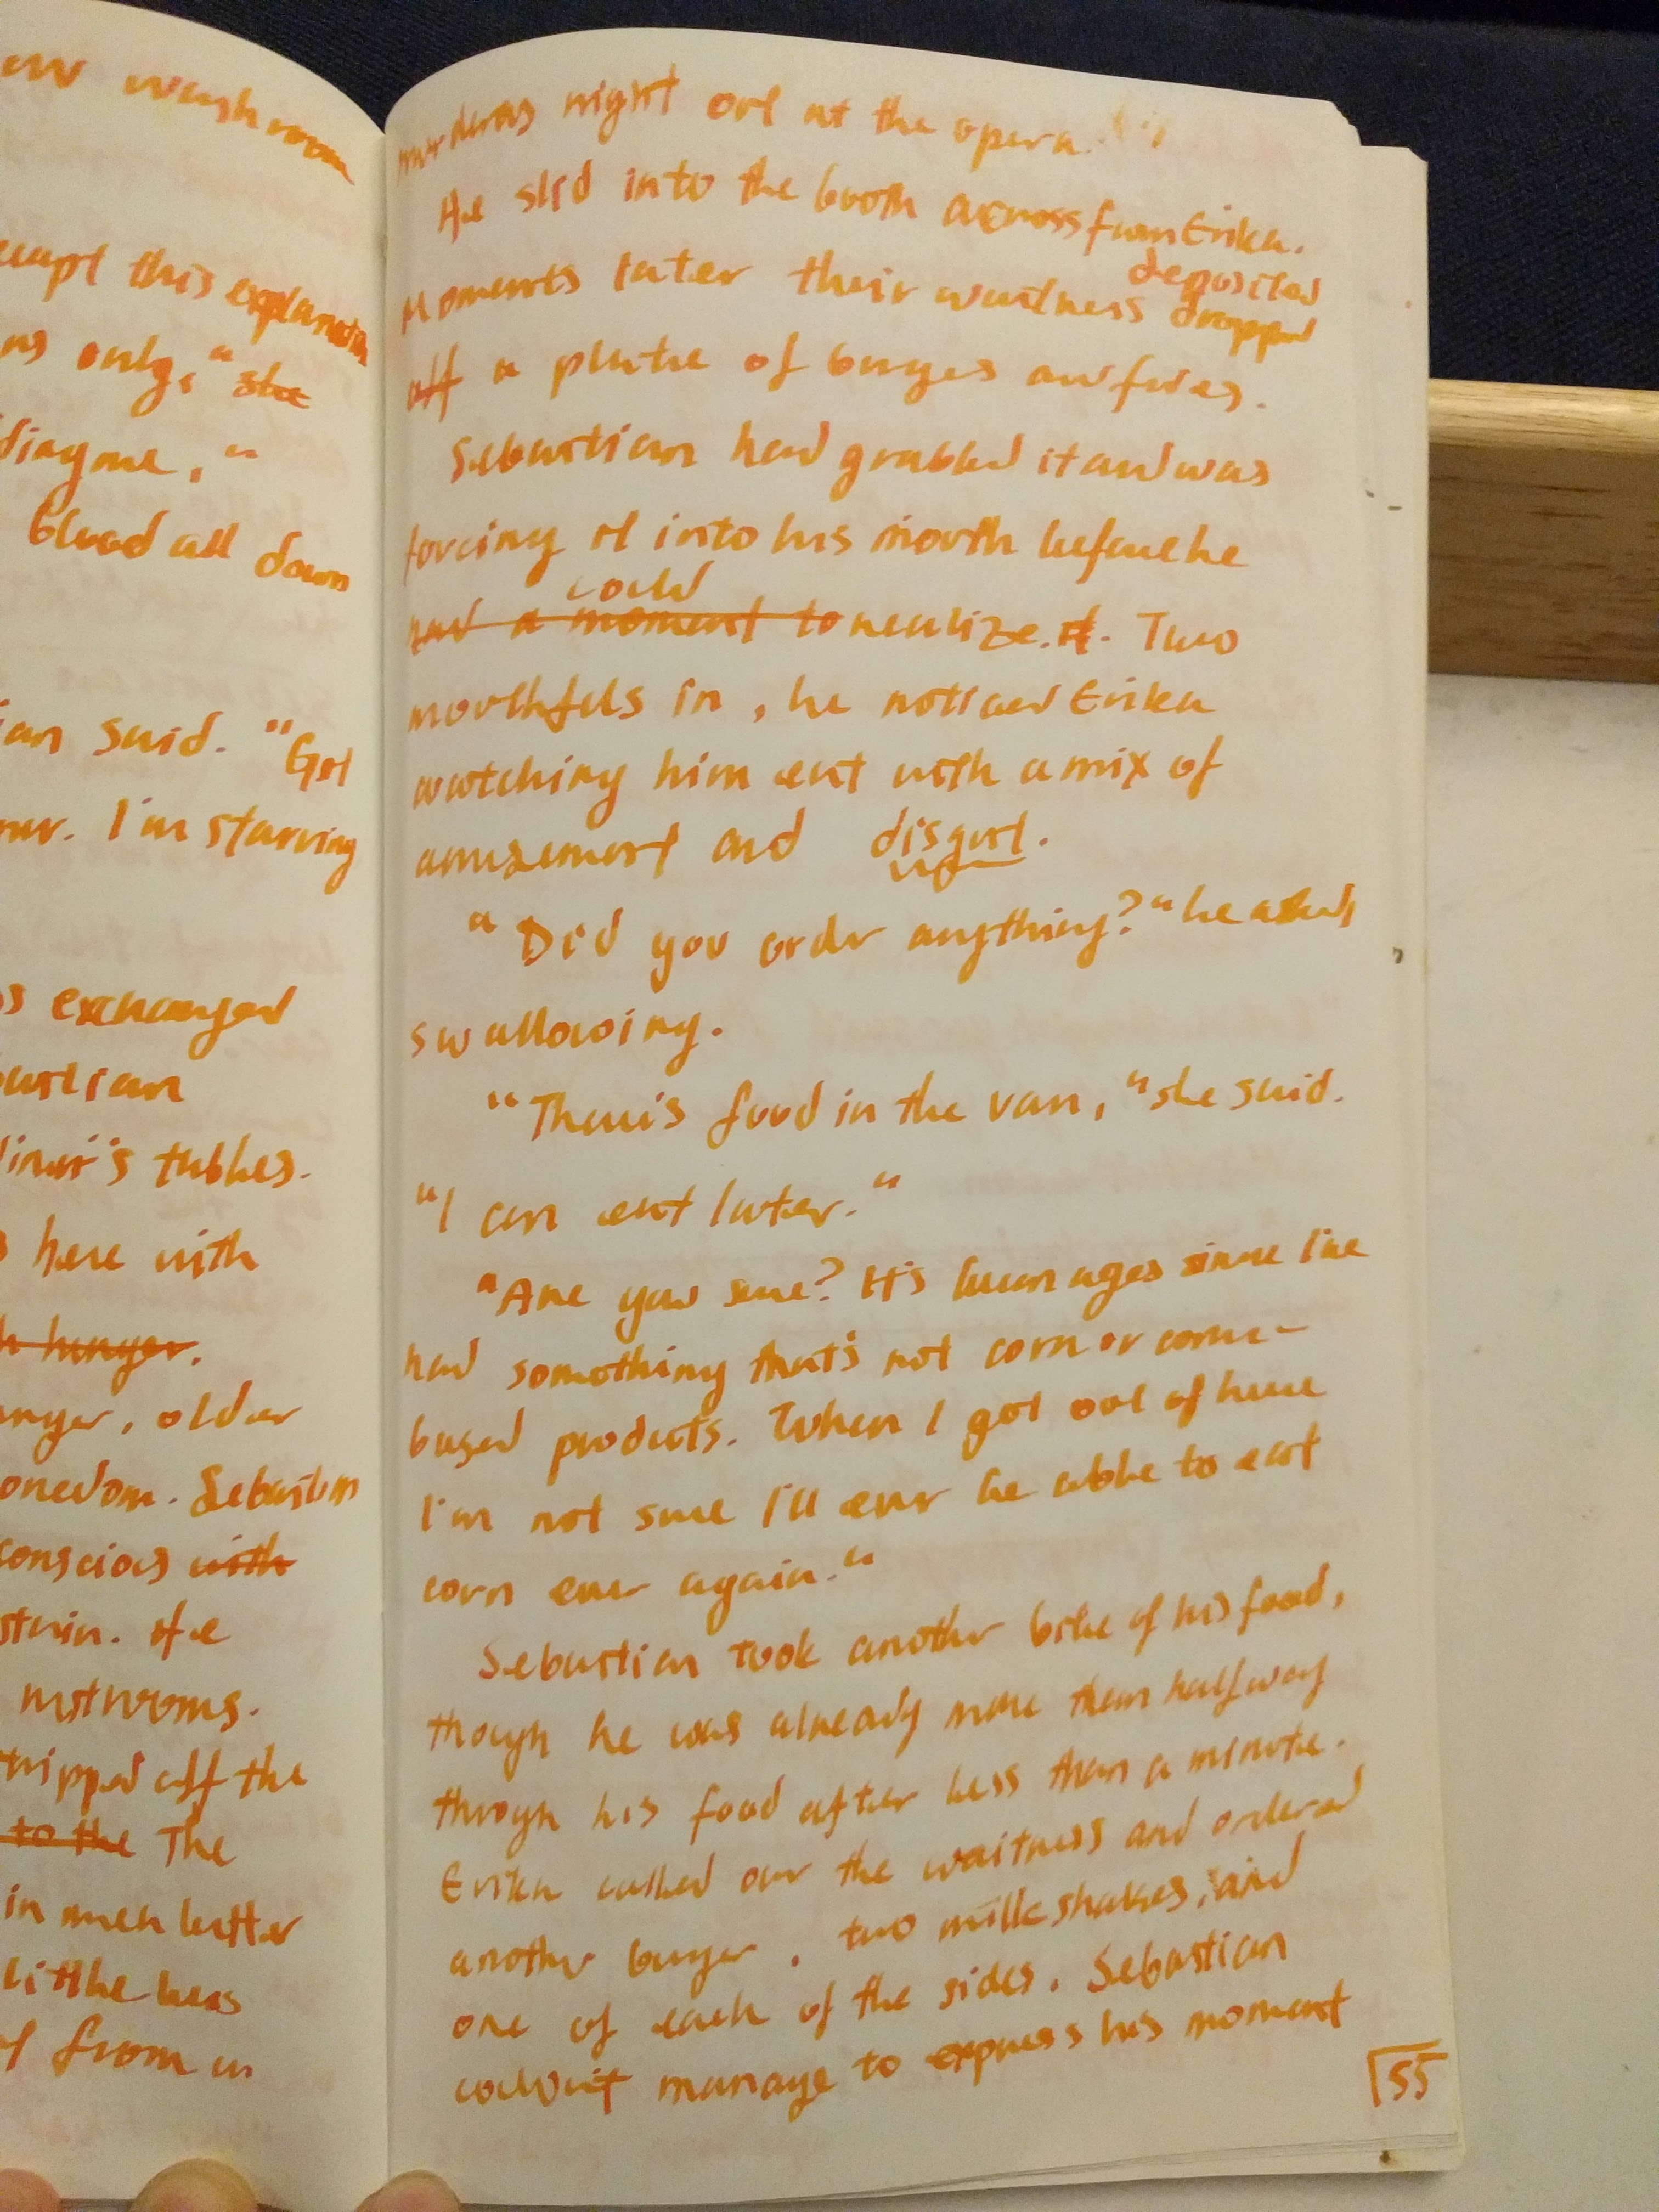 washroom
this explanation
only," she
me,"
blood all down
said. "Got
I'm starving
exchanged
tables.
here with
hunger.
older
Sebastian
conscious with
stain. He
restrooms.
off the
to the The
in much better
little less
from a
murderers night out at the opera.
He slid into the booth across from Erika.
deposited
Moments later their waitress dropped
off a plate of burges and fries.
Sebastian had grabbed it and was
forcing it into his mouth before he
could
had a moment to realize. it. Two
mouthfuls in, he noticed Erika
watching him eat with a mix of
amusement and disgust.
"Did you order anything?" he asked,
swallowing.
"There's food in the van," she said.
"I can eat later."
"Are you sure? It's been ages since I've
had something that's not corn or corn-
based products. When I get out of here
I'm not sure I'll ever be able to eat
corn ever again."
Sebastian took another bite of his food,
though he was already more than halfway
through his food after less than a minute.
Erika called over the waitress and ordered
another burger, two milkshakes, and
one of each of the sides. Sebastian
couldn't manage to express his moment
55